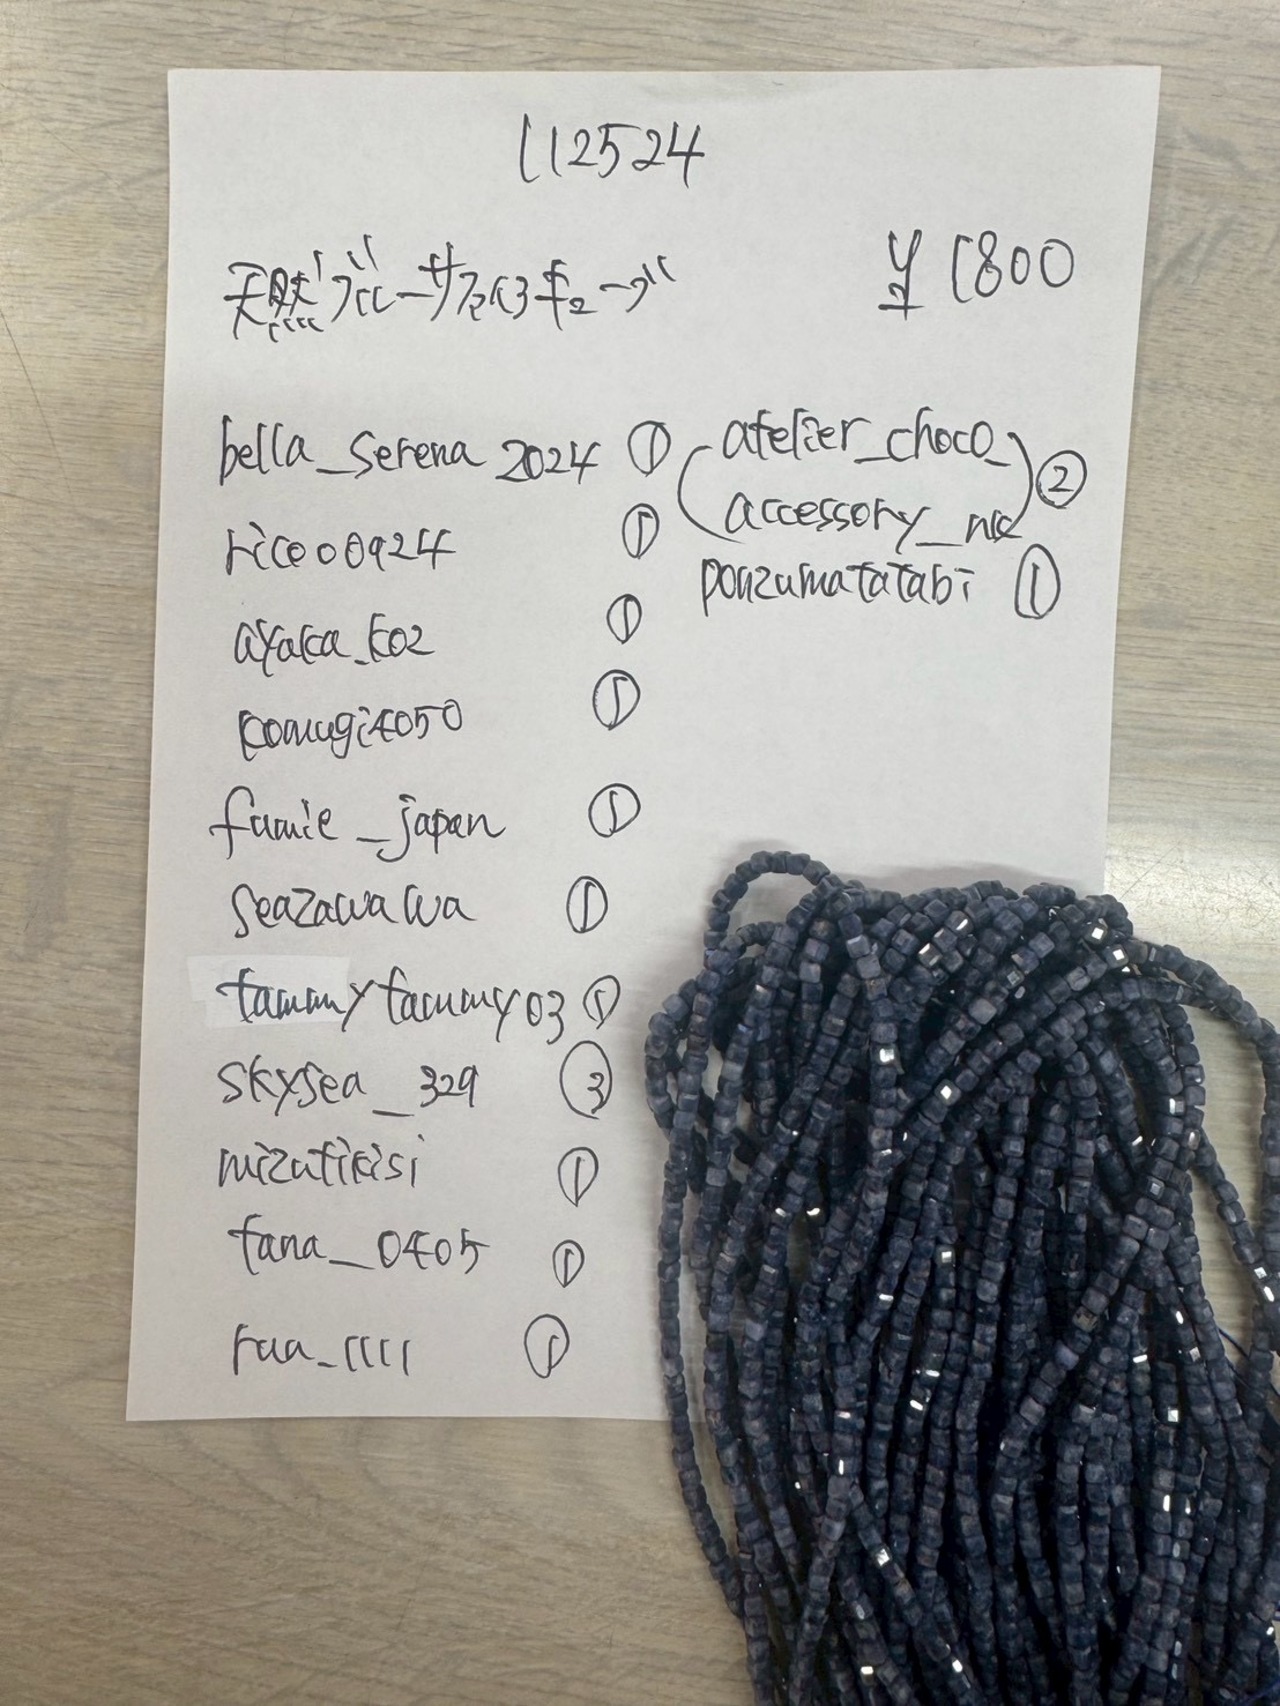 112524
天然ブルーサファイアキューブ
¥1800
bella_serena2024 ①
rico00924 ①
ayaka_k02 ①
komugi4050 ①
fumie_japan ①
seazawawa ①
tammytammy03 ①
skysea_329 ③
mizutikisi ①
tana_0405 ①
raa_1111 ①
(atelier_choco_
accessory_nk) ②
ponzumatatabi ①